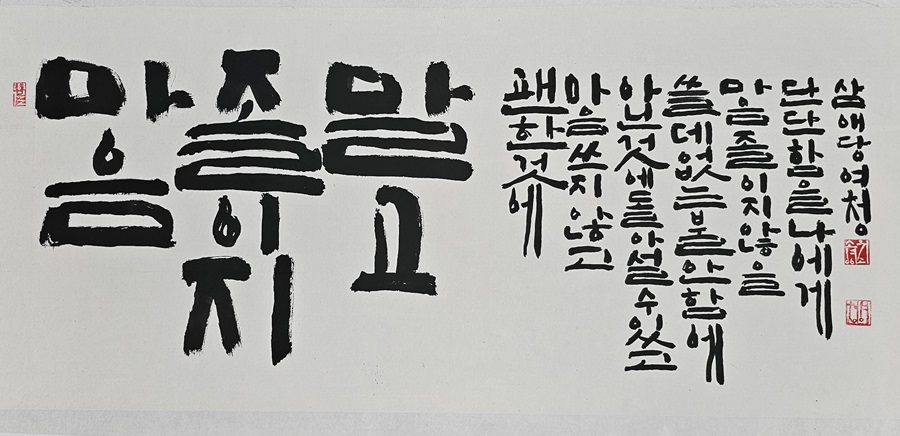 마음
졸이지
말고
괜한것에
마음쓰지않고
아닌것에돌아설수있고
쓸데없는불안함에
마음졸이지않을
단단함을나에게
삼애당여청